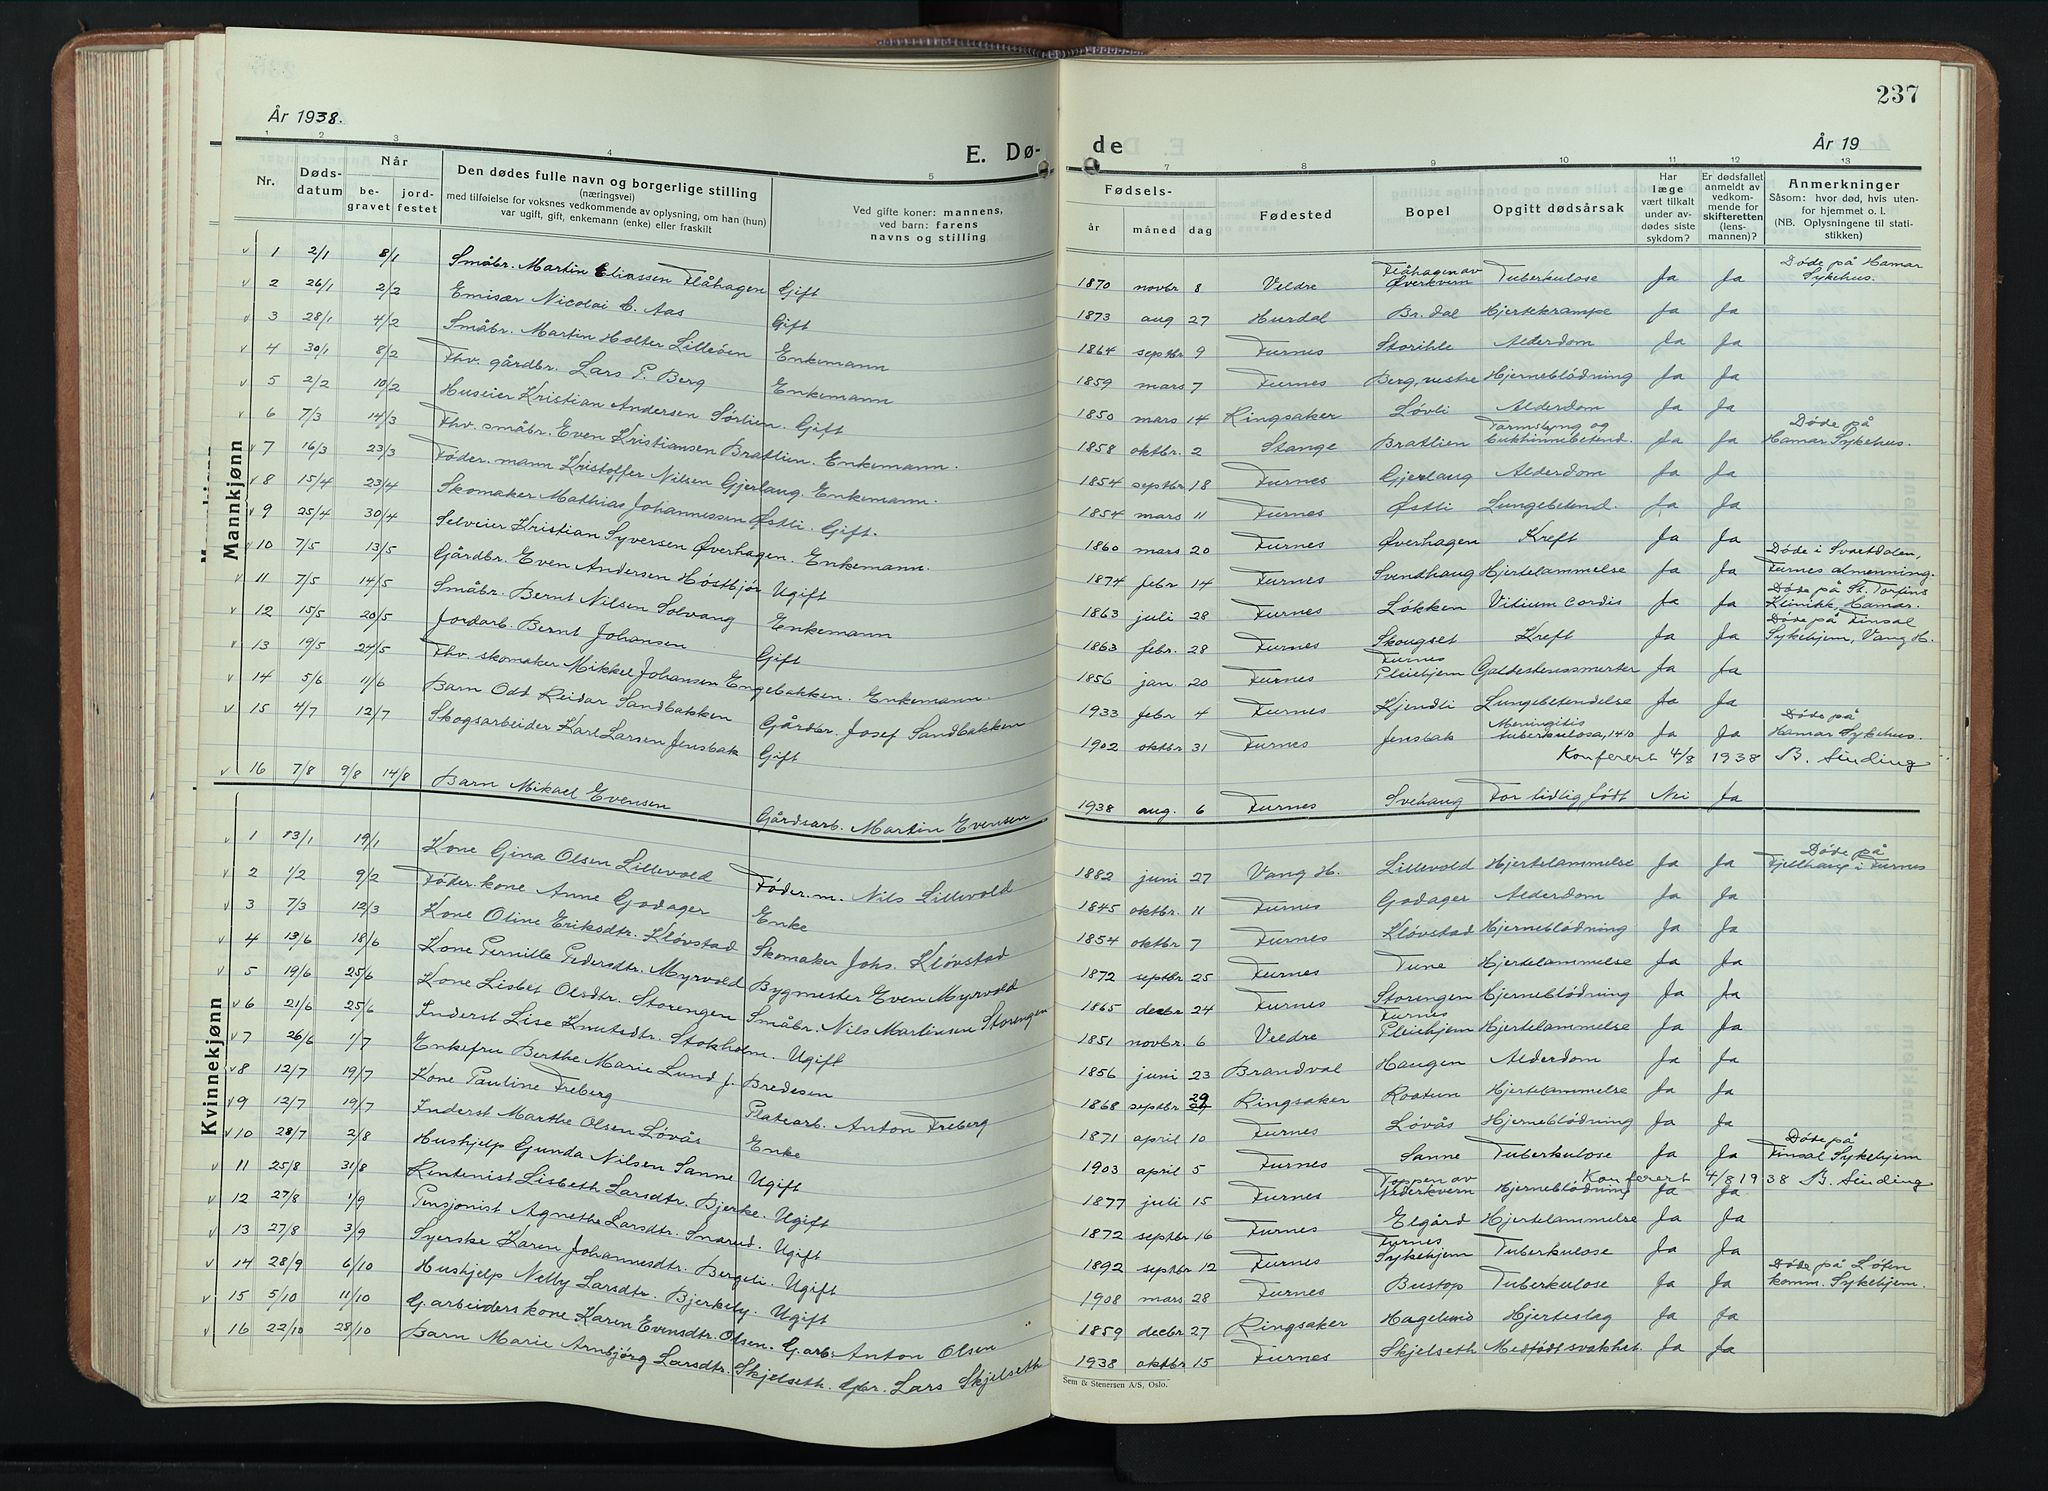 237
År 1938.
E. Dø-
de
År 19
1 2 3 4 5
7 8 9 10 11 12 13
Nr.
Døds-
datum
Når
be-
gravet
jord-
festet
Den dødes fulle navn og borgerlige stilling
(næringsvei)
med tilføielse for voksnes vedkommende av oplysning, om han (hun)
var ugift, gift, enkemann (enke) eller fraskilt
Ved gifte koner: mannens,
ved barn: farens
navns og stilling
Fødsels-
år måned dag
Fødested
Bopel
Opgitt dødsårsak
Har
læge
vært tilkalt
under av-
dødes siste
sykdom?
Er dødsfallet
anmeldt av
vedkom-
mende for
skifteretten
(lens-
mannen)?
Anmerkninger
Såsom: hvor død, hvis uten-
for hjemmet o. l.
(NB. Oplysningene til stati-
stikken)
Mannkjønn
1 2/1 8/1 Småbr. Martin Eliassen Flåhagen Gift 1870 novbr 8 Veldre Flåhagen av Øverkvern Tuberkulose Ja Ja Døde på Hamar Sykehus.
2 26/1 2/2 Emisær Nicolai C. Aas Gift 1873 aug 27 Hurdal Br. dal Hjertekrampe Ja Ja
3 28/1 4/2 Småbr. Martin Holter Lilleøen Enkemann 1864 septbr 9 Furnes Storihle Alderdom Ja Ja
4 30/1 8/2 Fhv. gårdbr. Lars P. Berg Enkemann 1859 mars 7 Furnes Berg, vestre Hjerneblødning Ja Ja
5 2/2 10/2 Huseier Kristian Andersen Sørlien. Gift 1850 mars 14 Ringsaker Løvli Alderdom Ja Ja
6 7/3 14/3 Fhv. småbr. Even Kristiansen Bratlien. Enkemann. 1858 oktbr. 2 Stange Bratlien Tarmslyng og Bukhinnebetend. Ja Ja Døde på Hamar Sykehus.
7 16/3 23/3 Føder.mann Kristoffer Nilsen Gjerlaug. Enkemann. 1854 septbr 18 Furnes Gjerlaug Alderdom Ja Ja
8 15/4 23/4 Skomaker Mathias Johannessen Østli. Gift. 1854 mars 11 Furnes Østli Lungebetend. Ja Ja
9 25/4 30/4 Selveier Kristian Syversen Øverhagen Enkemann. 1860 mars 20 Furnes Øverhagen Kreft Ja Ja
10 7/5 13/5 Gårdbr. Even Andersen Høstbjør Ugift 1874 febr 14 Furnes Svendhaug Hjertelammelse Ja Ja Døde i Svartdalen, Furnes almenning.
11 7/5 14/5 Småbr. Bernt Nilsen Solvang Enkemann 1863 juli 28 Furnes Løkken Vitium cordis Ja Ja Døde på St. Torfins Klinikk, Hamar.
12 15/5 20/5 Jordarb. Bernt Johansen Gift 1863 febr. 28 Furnes Skougset Kreft Ja Ja Døde på Finsal Sykehjem, Vang H.
13 19/5 24/5 Fhv. skomaker Mikkel Johansen Engebakken. Enkemann. 1856 jan 20 Furnes Furnes Pleiehjem Galdestenssmerter Ja Ja
14 5/6 11/6 Barn Odd Reidar Sandbakken Gårdbr. Josef Sandbakken 1933 febr 4 Furnes Kjendli Lungebetendelse Ja Ja
15 4/7 12/7 Skogsarbeider Karl Larsen Jensbak Gift 1902 oktbr 31 Furnes Jensbak Meningitis tuberkulosa, 1410 Ja Ja Døde på Hamar Sykehus.
Konferert 4/8 1938 B. Sinding
16 7/8 9/8 14/8 Barn Mikael Evensen Gårdsarb. Martin Evensen 1938 aug. 6 Furnes Svehaug For tidlig født Nei Ja
Kvinnekjønn
1 13/1 19/1 Kone Gina Olsen Lillevold Føder.m. Nils Lillevold 1882 juni 27 Vang H. Lillevold Hjertelammelse Ja Ja Døde på Fjellhaug i Furnes
2 1/2 9/2 Føder.kone Anne Godager Enke 1845 oktbr. 11 Furnes Godager Alderdom Ja Ja
3 7/3 12/3 Kone Oline Eriksdtr. Kløvstad Skomaker Johs. Kløvstad 1854 oktbr 7 Furnes Kløvstad Hjerneblødning Ja Ja
4 13/6 18/6 Kone Pernille Pedersdtr. Myrvold Bygmester Even Myrvold 1872 septbr 25 Furnes Tune Hjertelammelse Ja Ja
5 19/6 25/6 Kone Lisbet Olsdtr. Storengen Småbr. Nils Martinsen Storengen 1865 decbr 24 Furnes Storengen Hjerneblødning Ja Ja
6 21/6 25/6 Inderst Lise Knutsdtr. Stokholm. Ugift 1851 novbr. 6 Veldre Furnes Pleiehjem Hjertelammelse Ja Ja
7 26/6 1/7 Enkefru Berthe Marie Lund f. Bredesen 1856 juni 23 Brandval Haugen Alderdom Ja Ja
8 12/7 19/7 Kone Pauline Freberg Platearb. Anton Freberg 1868 septbr 29 Ringsaker Roatun Hjertelammelse Ja Ja
9 12/7 19/7 Inderst Marthe Olsen Løvås Enke 1871 april 10 Furnes Løvås Hjerneblødning Ja Ja
10 28/7 2/8 Hushjelp Gunda Nilsen Sanne Ugift 1903 april 5 Furnes Sanne Tuberkulose Ja Ja Døde på Finsal Sykehjem
Konferert 4/8 1938 B. Sinding
11 25/8 31/8 Rentenist Lisbeth Larsdtr. Bjerke. Ugift 1877 juli 15 Furnes Toppen av Nederkvern Hjerneblødning Ja Ja
12 27/8 1/9 Pensjonist Agnethe Larsdtr. Snarud. Ugift 1872 septbr 16 Furnes Elgård Hjertelammelse Ja Ja
13 27/8 3/9 Syerske Karen Johannesdtr. Bergeli. Ugift 1892 septbr 12 Furnes Furnes Sykehjem Tuberkulose Ja Ja
14 28/9 6/10 Hushjelp Nelly Larsdtr. Bjerkely. Ugift 1908 mars 28 Furnes Bustop Tuberkulose Ja Ja Døde på Løten komm. Sykehjem.
15 5/10 11/10 G.arbeiders kone Karen Evensdtr. Olsen. G.arb. Anton Olsen 1859 decbr 27 Ringsaker Hagelund Hjerteslag Ja Ja
16 22/10 28/10 Barn Marie Arnbjørg Larsdtr. Skjelseth. Gbr. Lars Skjelseth 1938 oktbr 15 Furnes Skjelseth Medfødt svakhet. Ja Ja
Sem & Stenersen A/S, Oslo.